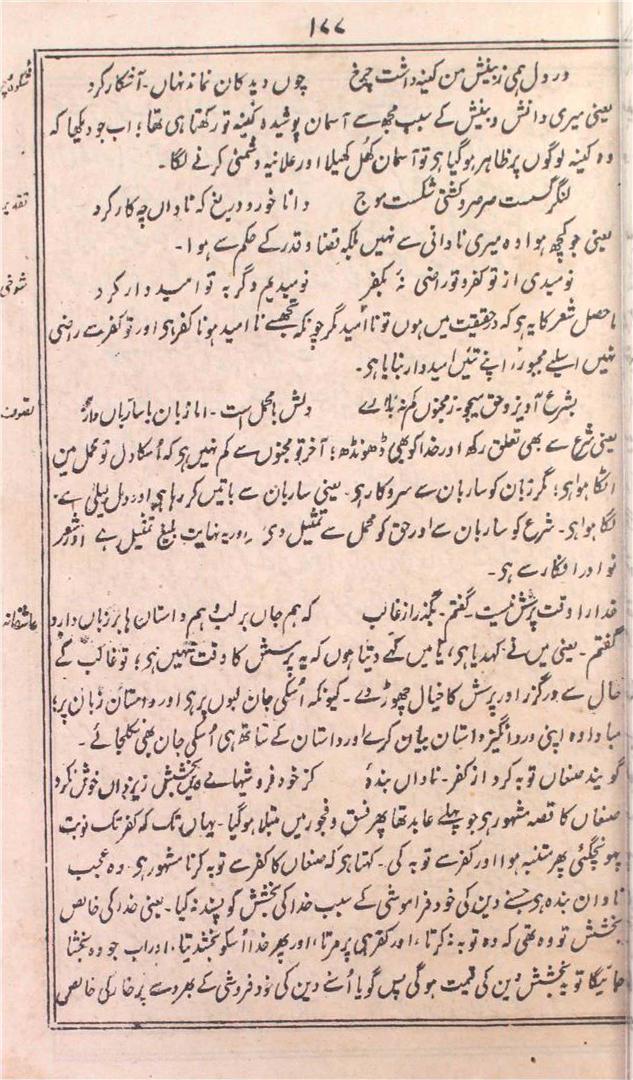 ۱۷۷
در دل ہمی ز بینش من کینہ داشت چرخ چوں دید کان نماند نہاں۔ آشکار کرد
یعنی میری دانش و بینش کے سبب مجھ سے آسمان پوشیدہ کینہ تو رکھتا ہی تھا؛ اب جو دیکھا کہ
وہ کینہ لوگوں پر ظاہر ہو گیا ہو تو آسمان کھُل کھیلا اور علانیہ دشمنی کرنے لگا۔
تقدیر
لنگر گسست صرصر و کشتی شکست موج دانا خورد دریغ کہ ناداں چہ کار کرد
یعنی جو کچھ ہوا وہ میری نادانی سے نہیں بلکہ قضا و قدر کے حکم سے ہوا۔
شوخی
نومیدی از تو کفر و تو راضی نہٖ بکفر نومیدیم دگر بہ تو امیدوار کرد
ماحصل شعر کا یہ ہی کہ درحقیقت میں ہوں تو نا اُمید مگر چونکہ تجھسے نا امید ہونا کفر ہی اور تو کفر سے راضی
نہیں اسلیے مجبوراً اپنے تئیں امیدوار بنایا ہی۔
تصوف
بشرع آویز و حق میجو۔ ز مجنوں کم نہٖ بارے دلش با محمل است۔ اما زباں با سارباں دارد
یعنی شرع سے بھی تعلق رکھ اور خدا کو بھی ڈھونڈھ؛ آخر تو مجنوں سے کم نہیں ہی کہ اُسکا دل تو محمل میں
اٹکا ہوا ہی؛ مگر زبان کو ساربان سے سروکار ہی۔ یعنی ساربان سے باتیں کر رہا ہی اور دل لیلیٰ سے
لگا ہوا ہی۔ شرع کو ساربان سے اور حق کو محمل سے تمثیل دی اور یہ نہایت بلیغ تمثیل ہے اور شعر
نوادر افکار سے ہی۔
عاشقانہ
خدا را وقت پرسش نیست۔ گفتم۔ بگذر از غالب کہ ہم جاں بر لب و ہم داستاں ہا بر زباں دارد
گفتم۔ یعنی میں نے کہدیا ہی، یا میں کہے دیتا ہوں کہ یہ پرسش کا وقت نہیں ہی؛ تو غالب کے
خیال سے درگزر اور پرسش کا خیال چھوڑ دے۔ کیونکہ اُسکی جان لبوں پر ہی اور داستان زبان پر؛
مبادا وہ اپنی درد انگیز داستان بیان کرے اور داستان کے ساتھ ہی اُسکی جان بھی نکلجائے۔
گویند صنعاں توبہ کرد از کفر۔ ناداں بندۂ کز خود فروشیہائے دیں بخشش ز یزداں خوش نکرد
صنعاں کا قصہ مشہور ہی جو پہلے عابد تھا پھر فسق و فجور میں مبتلا ہو گیا۔ یہاں تک کہ کفر تک نوبت
پہونچگئی پھر متنبہ ہوا اور کفر سے توبہ کی۔ کہتا ہو کہ صنعاں کا کفر سے توبہ کرنا مشہور ہی۔ وہ عجب
نادان بندہ ہی جسنے دین کی خود فراموشی کے سبب خدا کی بخشش کو پسند نہ کیا۔ یعنی خدا کی خالص
بخشش تو وہ تھی کہ وہ توبہ نہ کرتا، اور کفر ہی پر مرتا، اور پھر خدا اُسکو بخشدیتا، اور اب جو وہ بخشا
جائیگا تو یہ بخشش دین کی قیمت ہوگی پس گویا اُسنے دین کی خود فروشی کے بھروسے پر خدا کی خالص